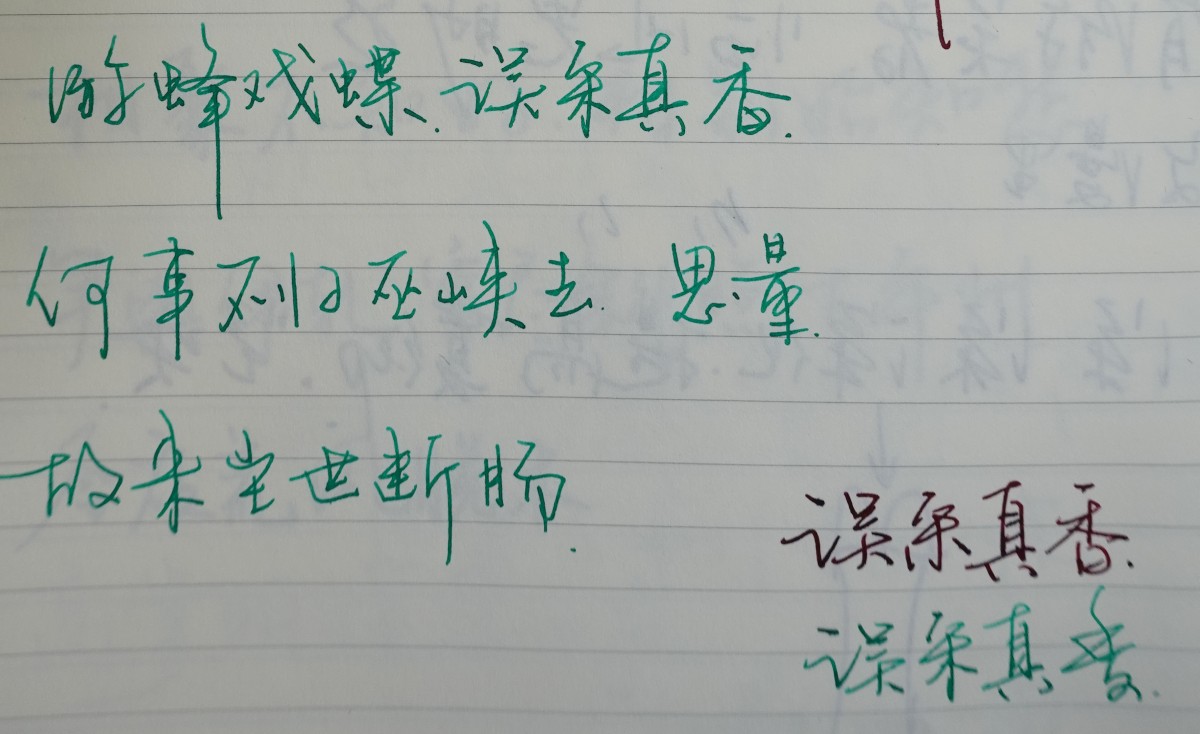 游蜂戏蝶.误采真香.
何事不归巫峡去.思量.
故来尘世断肠.
误采真香.
误采真香.